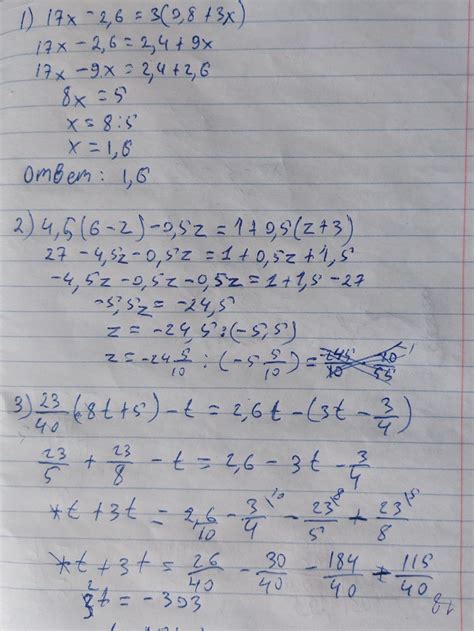 1) 17x - 2,6 = 3(0,8 + 3x)
17x - 2,6 = 2,4 + 9x
17x - 9x = 2,4 + 2,6
8x = 5
x = 8 : 5
x = 1,6
Ответ: 1,6
2) 4,5(6 - z) - 0,5z = 1 + 0,5(z + 3)
27 - 4,5z - 0,5z = 1 + 0,5z + 1,5
-4,5z - 0,5z - 0,5z = 1 + 1,5 - 27
-5,5z = -24,5
z = -24,5 : (-5,5)
z = -24 5/10 : (-5 5/10) =
3) 23/40 (8t + 5) - t = 2,6t - (3t - 3/4)
23/5 + 23/8 - t = 2,6 - 3t - 3/4
t + 3t = 26/10 - 3/4 - 23/5 + 23/8
t + 3t = 26/40 - 30/40 - 184/40 + 115/40
t = -303